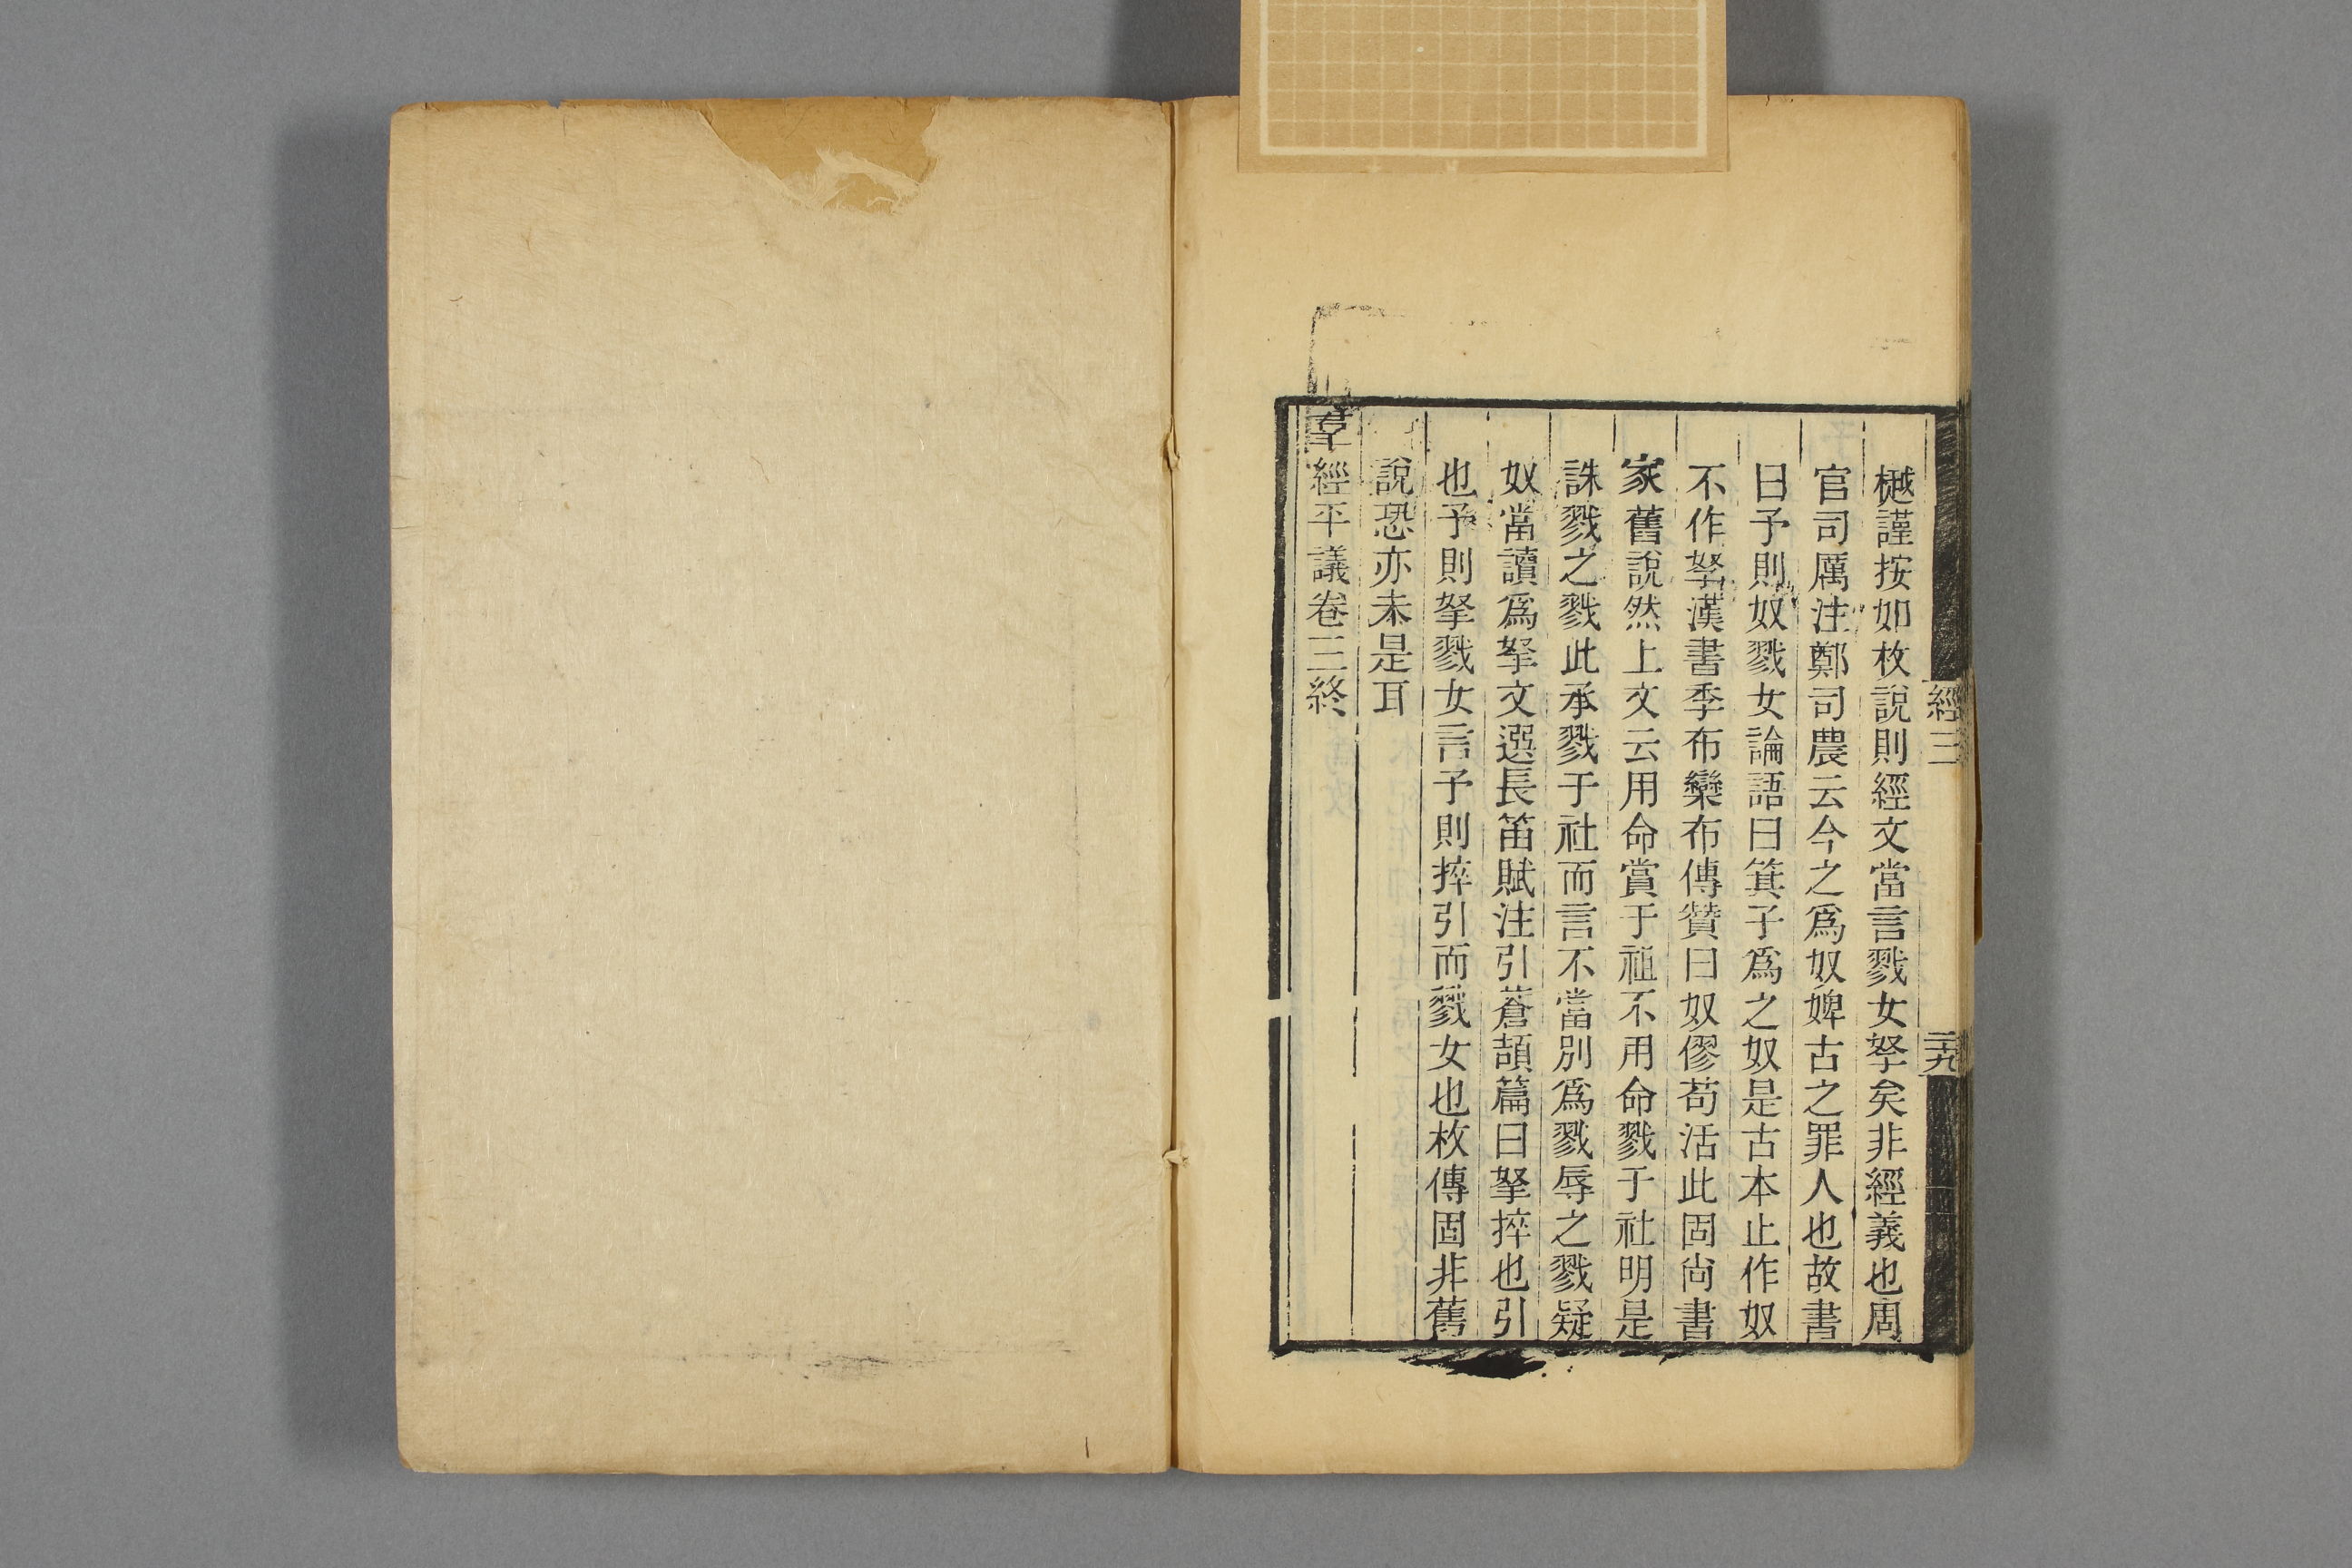 樾謹按如枚說則經文當言戮女孥矣非經義也周
官司厲注鄭司農云今之爲奴婢古之罪人也故書
曰予則奴戮女論語曰箕子爲之奴是古本止作奴
不作孥漢書季布欒布傳贊曰奴僇苟活此固尙書
家舊說然上文云用命賞于祖不用命戮于社明是
誅戮之戮此承戮于社而言不當別爲戮辱之戮疑
奴當讀爲拏文選長笛賦注引蒼頡篇曰拏捽也引
也予則拏戮女言予則捽引而戮女也枚傳固非舊
說恐亦未是耳
羣經平議卷三終
經三
二十九